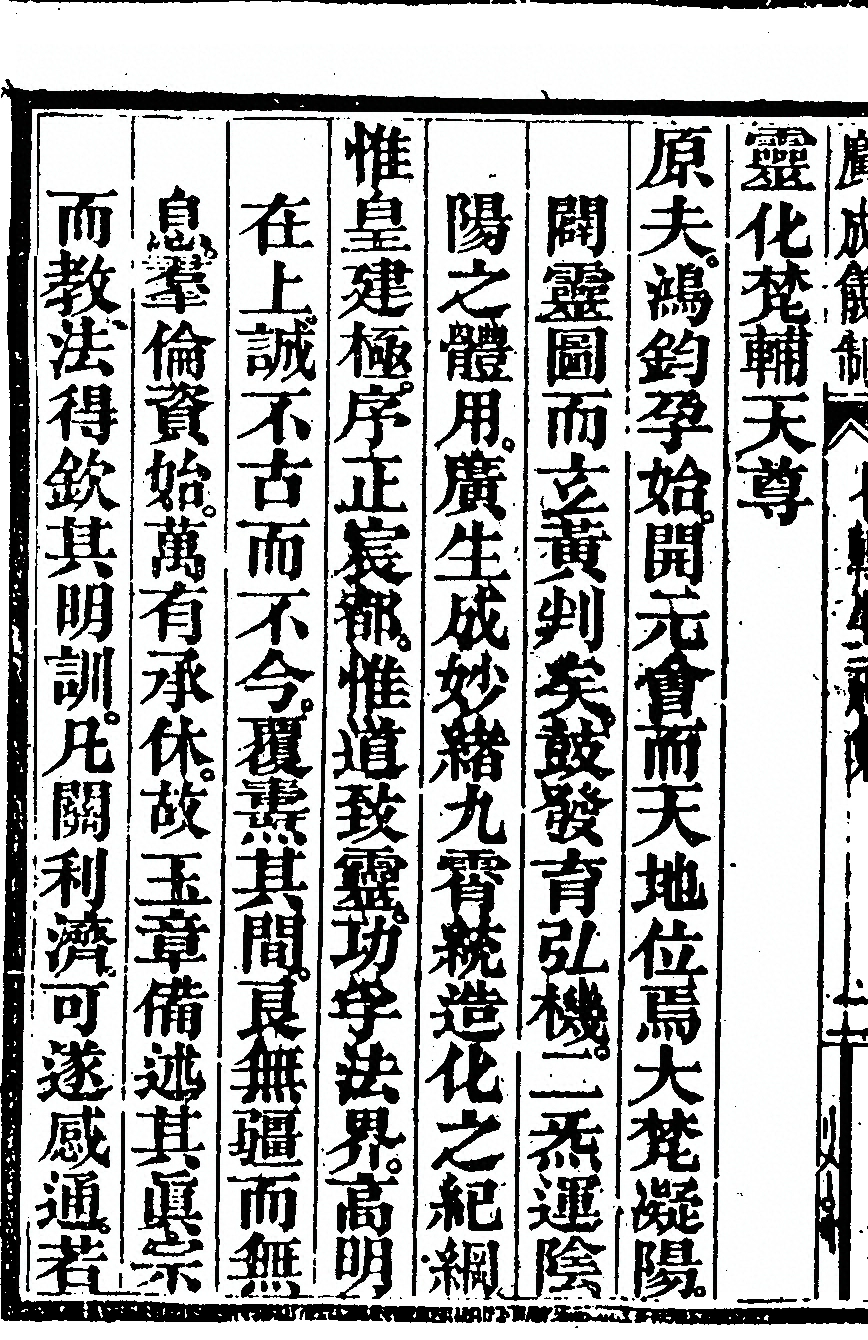 廣成儀制
靈化梵輔天尊
原夫。鴻鈞孕始。開元會而天地位焉大梵凝陽。
闢靈圖而立黃判矣。鼓發育弘機。二炁運陰
陽之體用。廣生成妙緒九霄統造化之紀綱
惟皇建極。序正宸都。惟道致靈。功孚法界。高明
在上。誠不古而不今。覆燾其間。良無疆而無
息。羣倫資始。萬有承休。故玉章備述其眞宗
而教法得欽其明訓。凡關利濟。可遂感通。若